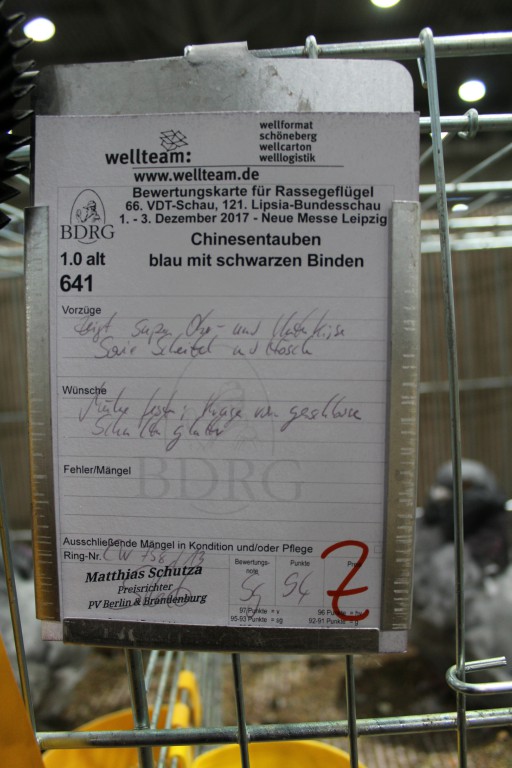 wellteam:
wellformat
schöneberg
wellcarton
welllogistik
www.wellteam.de
Bewertungskarte für Rassegeflügel
66. VDT-Schau, 121. Lipsia-Bundesschau
1. - 3. Dezember 2017 - Neue Messe Leipzig
BDRG
Chinesentauben
1.0 alt
blau mit schwarzen Binden
641
Vorzüge
Zeigt super und
Scheitel und
Wünsche
fester; Krage vorn geschlossen
Schultern glatter
BDRG
Fehler/Mängel
Ausschließende Mängel in Kondition und/oder Pflege
Ring-Nr. CW 758 / 13
Matthias Schutza
Preisrichter
PV Berlin & Brandenburg
Bewertungs-
note
Sg
Punkte
94
Preis
Z
97 Punkte = v
95-93 Punkte = sg
96 Punkte = hv
92-91 Punkte = g